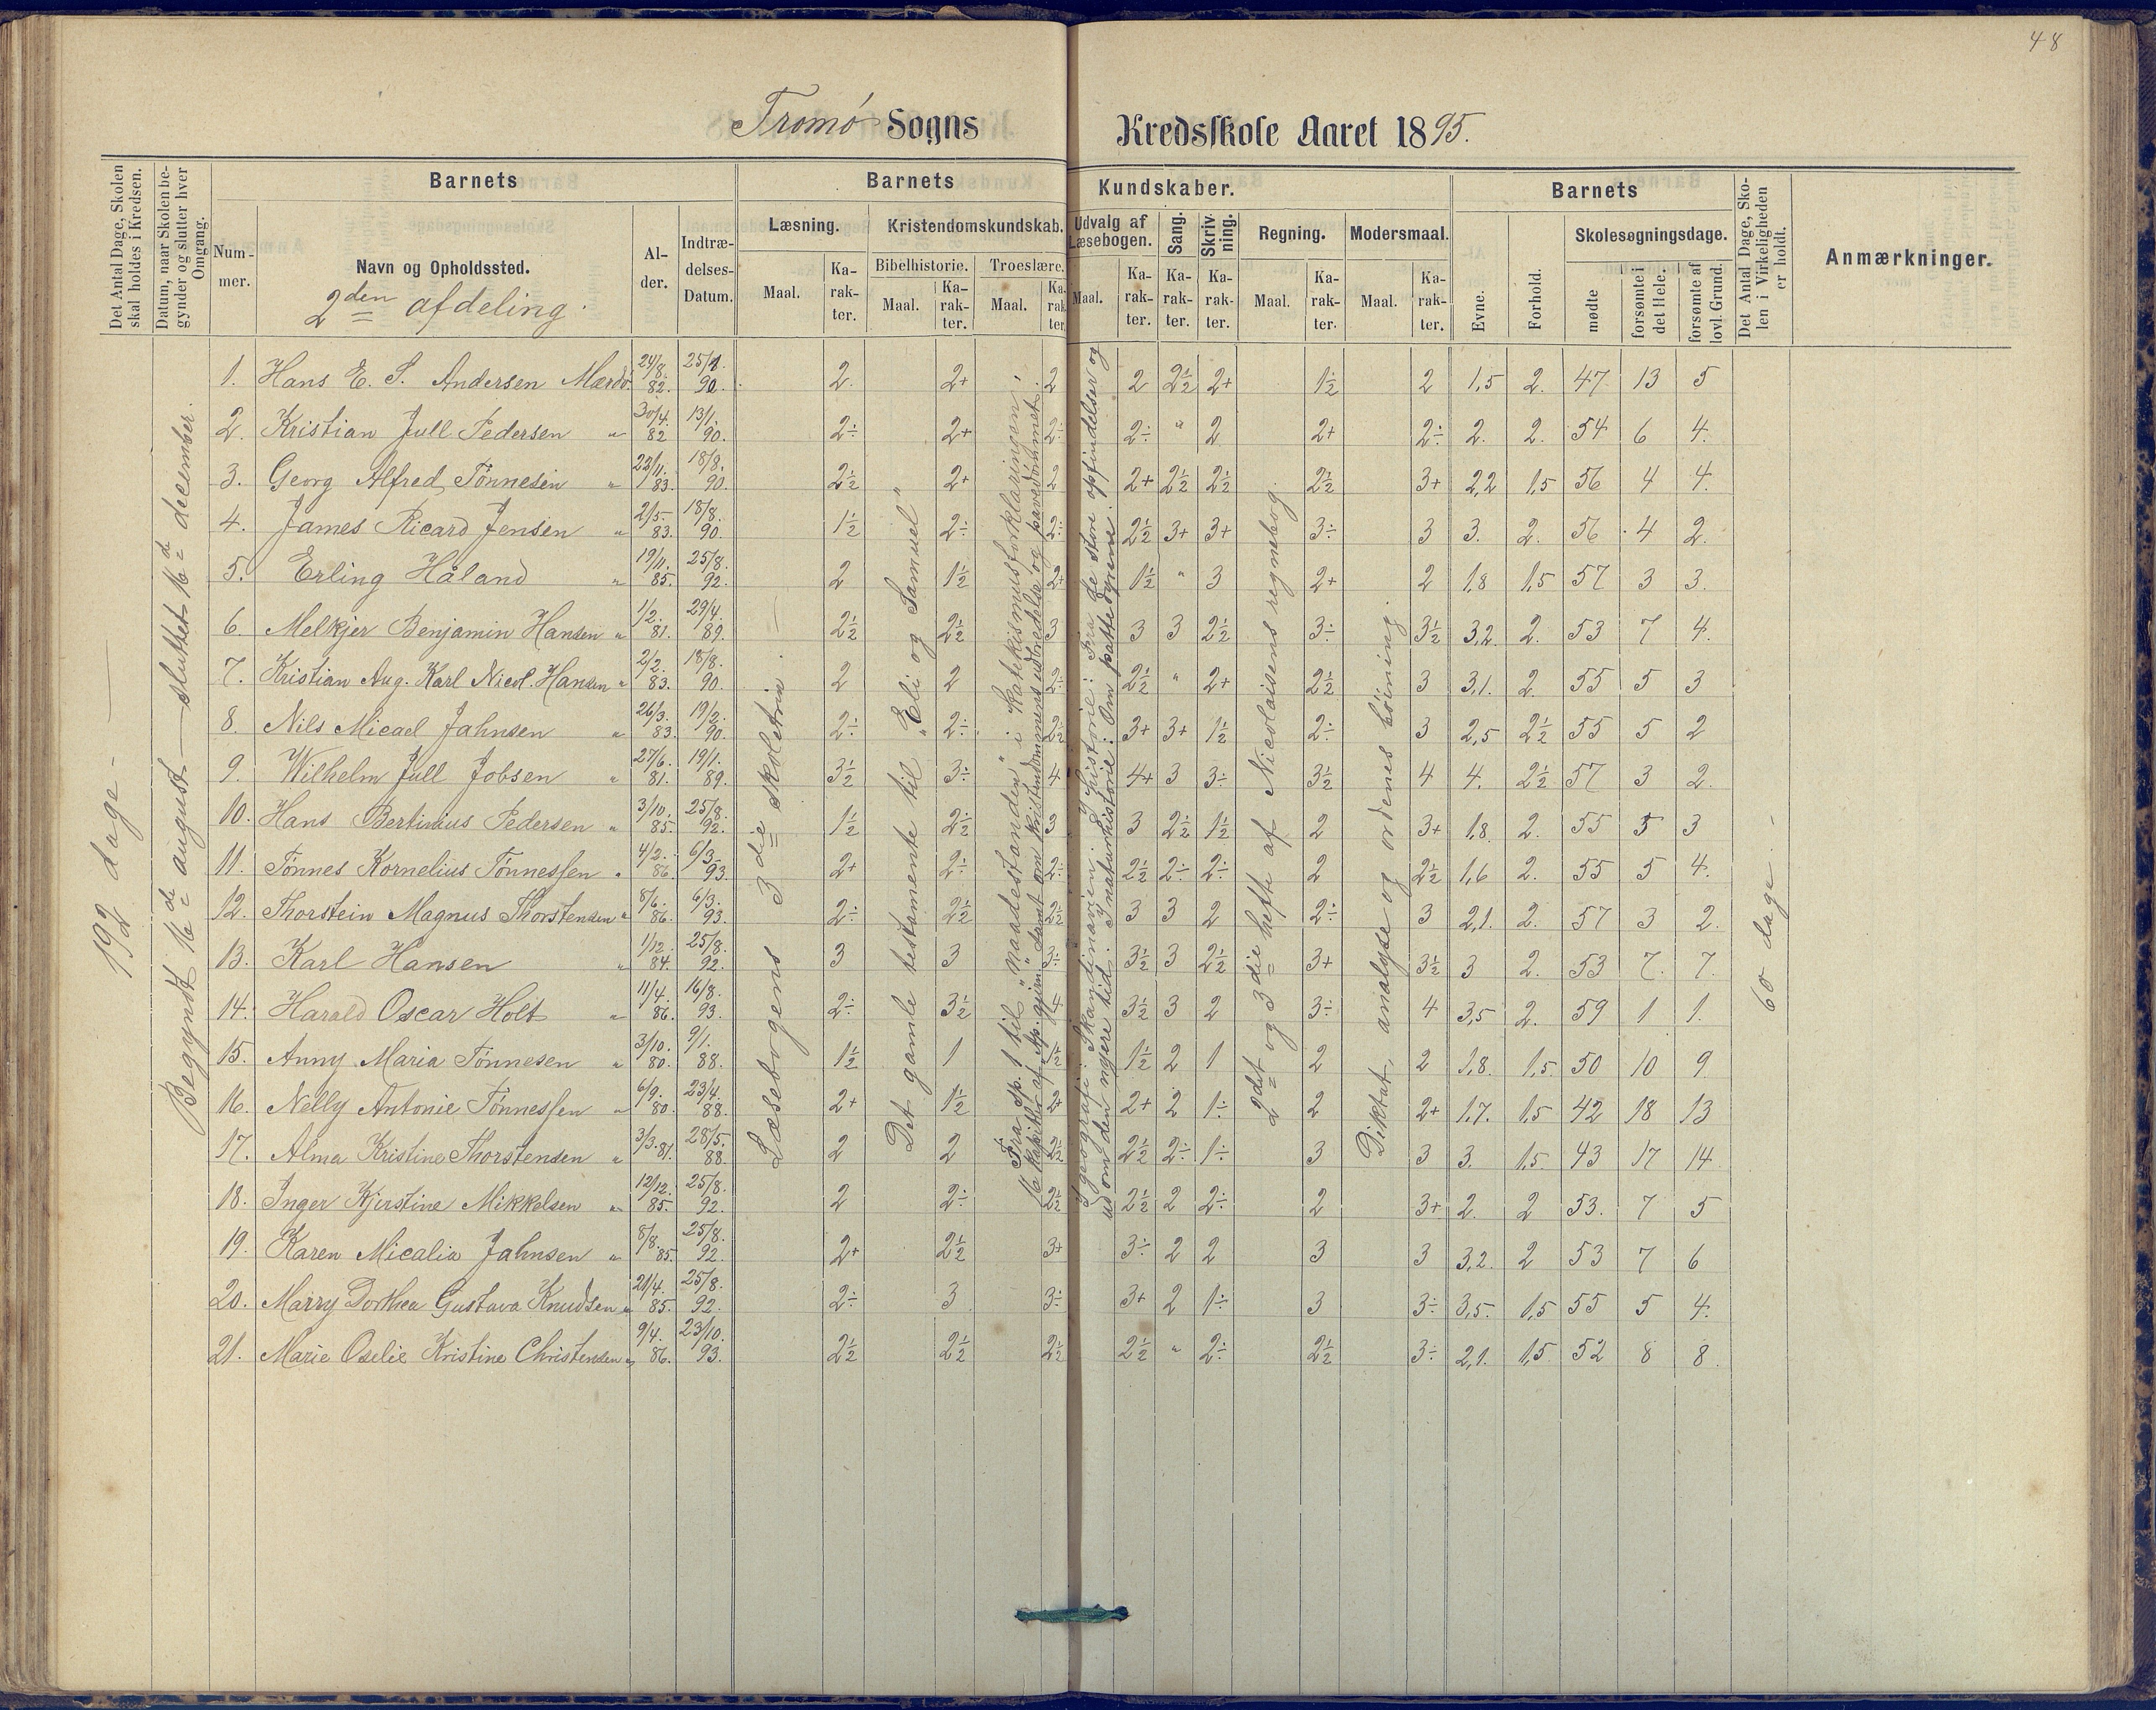 48
Tromø Sogns Kredsskole Aaret 1895.
Det Antal Dage, Skolen skal holdes i Kredsen.
Datum, naar Skolen begynder og slutter hver Omgang.
Barnets
Nummer.
Navn og Opholdssted.
2den afdeling.
Alder.
Indtrædelses-Datum.
Barnets Kundskaber.
Læsning.
Maal.
Karakter.
Kristendomskundskab.
Bibelhistorie.
Maal.
Karakter.
Troeslære.
Maal.
Karakter.
Udvalg af Læsebogen.
Maal.
Karakter.
Sang.
Karakter.
Skrivning.
Karakter.
Regning.
Maal.
Karakter.
Modersmaal.
Maal.
Karakter.
Barnets
Evne.
Forhold.
Skolesøgningsdage.
mødte
forsømte i det Hele.
forsømte af lovl. Grund.
Det Antal Dage, Skolen i Virkeligheden er holdt.
Anmærkninger.
192 dage -
Begyndt 16de august — sluttet 16de december.
Læsebogens 3die skoletrin. —
Det gamle testamente til "Eli og Samuel"
Fra sp. 1 til "naadestanden" i katekismusforklaringen,
16 kapitler af sp. gjem. samt om kristendommens udbredelse og pavedømmet.
I geografi: Skandinavien. I historie: Fra de store opfindelser og
ud om den nyere tid. I naturhistorie: Om pattedyrene.
2det og 3die hefte af Nicolaisens regnebog.
Diktat, analyse og ordenes bøining.
60 dage. -
1. Hans E. S. Andersen Mærdø. 24/8. 82. 25/8. 90. 2. 2+ 2 2 2½ 2+ 1½ 2 1,5 2. 47 13 5
2. Kristian Jull Pedersen " 30/4. 82 13/1. 90. 2÷ 2+ 2÷ 2÷ " 2 2+ 2÷ 2. 2. 54 6 4.
3. Georg Alfred Tønnesen " 22/11. 83. 18/8. 90. 2½ 2+ 2 2+ 2½ 2½ 2½ 3+ 2,2 1,5 56 4 4.
4. James Ricard Jensen " 2/5. 83. 18/8. 90. 1½ 2÷ 2÷ 2½ 3+ 3+ 3÷ 3 3. 2. 56 4 2.
5. Erling Håland " 19/11. 85. 25/8. 92. 2 1½ 2+ 1½ " 3 2+ 2 1,8 1,5 57 3 3.
6. Melkjer Benjamin Hansen " 1/2. 81. 29/4. 89. 2½ 2½ 3 3 3 2½ 3÷ 3½ 3,2. 2. 53 7 4.
7. Kristian Aug. Karl Nicol. Hansen " 2/2. 83. 18/8. 90. 2 2 2÷ 2½ " 2+ 2½ 3 3,1. 2. 55 5 3
8. Nils Micael Jahnsen " 26/3. 83. 19/2. 90. 2÷ 2÷ 2½ 3+ 3+ 1½ 2÷ 3 2,5 2½ 55 5 2
9. Wilhelm Jull Jobsen " 27/6. 81. 19/1. 89. 3½ 3÷ 4 4+ 3 3÷ 3½ 4 4. 2½ 57 3 2.
10. Hans Bertinius Pedersen " 3/10. 85. 25/8. 92. 1½ 2½ 3 3 2½ 1½ 2 3+ 1,8. 2. 55 5 3
11. Tønnes Kornelius Tønnessen " 4/2. 86. 6/3. 93. 2+ 2÷ 2÷ 2½ 2÷ 2÷ 2 2½ 1,6 2. 55 5 4.
12. Thorstein Magnus Thorstensen " 8/6. 86. 6/3. 93. 2÷ 2½ 2½ 3 3 2 2÷ 3 2,1. 2. 57 3 2.
13. Karl Hansen " 1/12. 84. 25/8. 92. 3 3 3÷ 3½ 3 2½ 3+ 3½ 3 2. 53 7. 7.
14. Harald Oscar Holt " 11/4. 86. 16/8. 93. 2÷ 3½ 4 3½ 3 2 3÷ 4 3,5 2. 59 1 1.
15. Anny Maria Tønnesen " 3/10. 80. 9/1. 88. 1½ 1 1½ 1½ 2 1 2 2 1,8. 1,5. 50 10 9.
16. Nelly Antonie Tønnessen " 6/9. 80. 23/4. 88. 2+ 1½ 2+ 2+ 2 1÷ 2 2+ 1,7. 1,5 42 18 13
17. Alma Kristine Thorstensen " 3/3. 81. 28/5. 88. 2 2 2½ 2½ 2÷ 1÷ 3 3 3. 1,5. 43 17 14
18. Inger Kjerstine Mikkelsen " 12/12. 85. 25/8. 92. 2 2÷ 2½ 2½ 2 2÷ 2 3+ 2. 2 53. 7 5
19. Karen Micalia Jahnsen " 8/8. 85. 25/8. 92. 2+ 2½ 3+ 3÷ 2 2 3 3 3,2. 2 53 7 6
20. Marry Dorthea Gustava Knudsen " 21/4. 85. 25/8. 92. 2÷ 3 3÷ 3+ 2 1÷ 3 3÷ 3,5. 1,5 55 5 4.
21. Marie Oselie Kristine Christensen " 9/4. 86. 23/10. 93. 2½ 2½ 2½ 2½ " 2÷ 2½ 3÷ 2,1. 1,5 52 8 8.